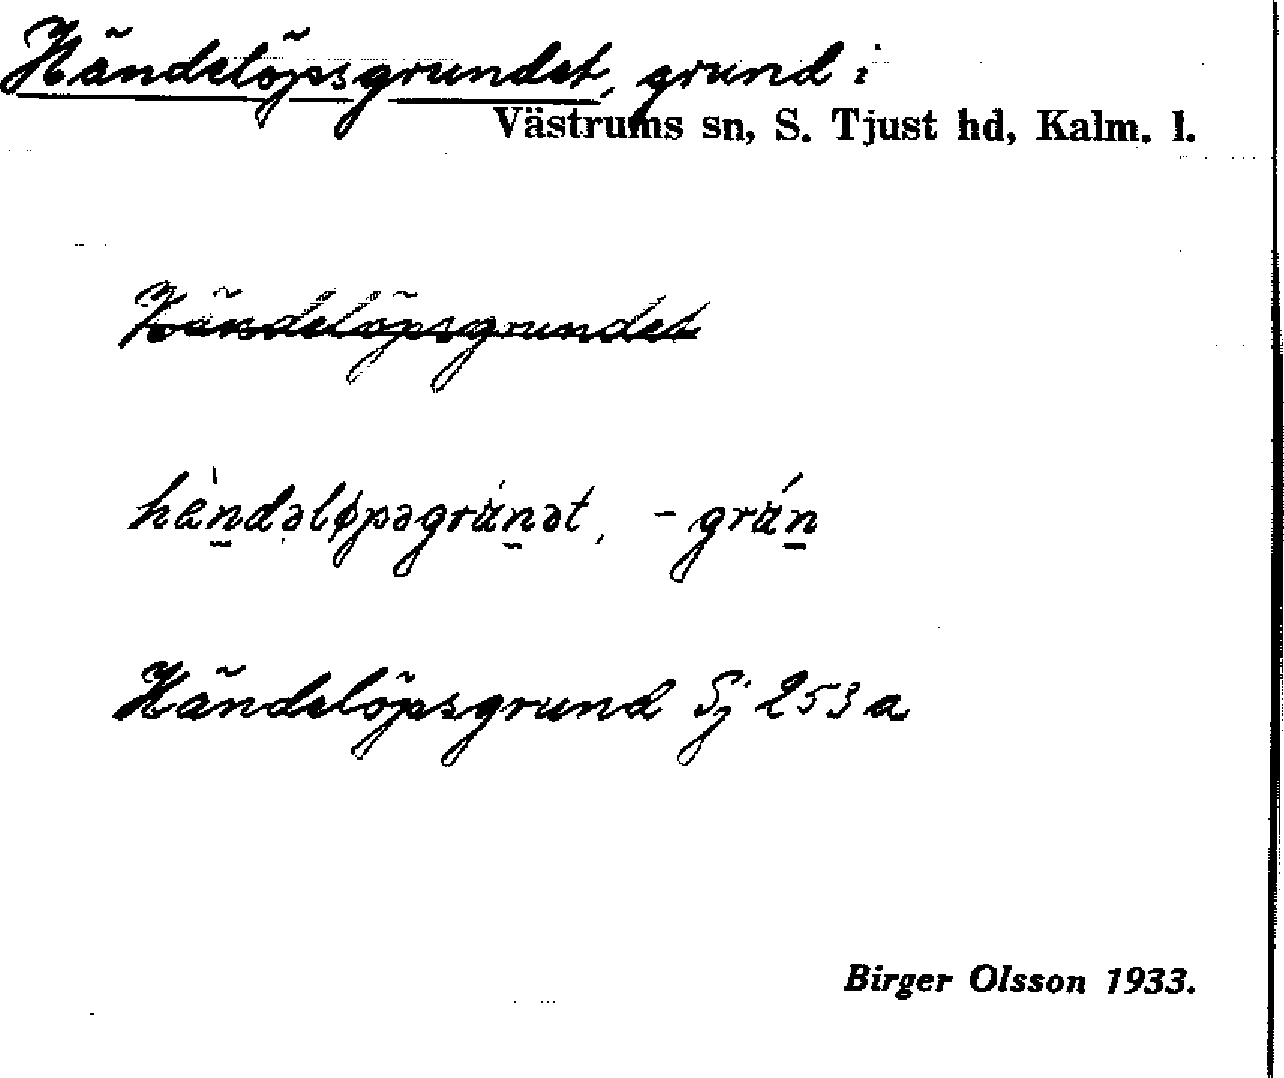 Händelöpsgrundet, grund i
Västrums sn, S. Tjust hd, Kalm. l.
Händelöpsgrundet
hàndəløpəgrúnət, -grún
Händelöpsgrund Sj 253 a
Birger Olsson 1933.